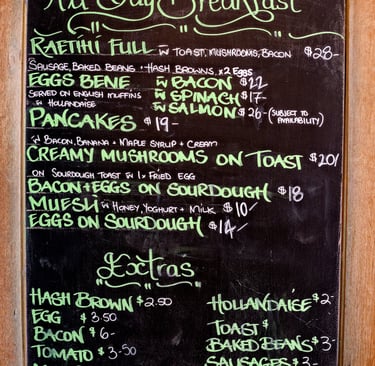 All Day Breakfast
RAETIHI FULL W TOAST, MUSHROOMS, BACON $28-
SAUSAGE, BAKED BEANS + HASH BROWNS, x2 EGGS
EGGS BENE W BACON $22
SERVED ON ENGLISH MUFFINS W SPINACH $17-
W HOLLANDAISE W SALMON $26- (SUBJECT TO AVAILABILITY)
PANCAKES $19-
W BACON, BANANA + MAPLE SYRUP + CREAM
CREAMY MUSHROOMS ON TOAST $20/
ON SOURDOUGH TOAST W 1x FRIED EGG
BACON+EGGS ON SOURDOUGH $18
MUESLI W HONEY, YOGHURT + MILK $10/
EGGS ON SOURDOUGH $14/
Extras
HASH BROWN $2.50
EGG $3.50
BACON $6-
TOMATO $3.50
HOLLANDAISE $2-
TOAST $
BAKED BEANS $3-
SAUSAGES $3-